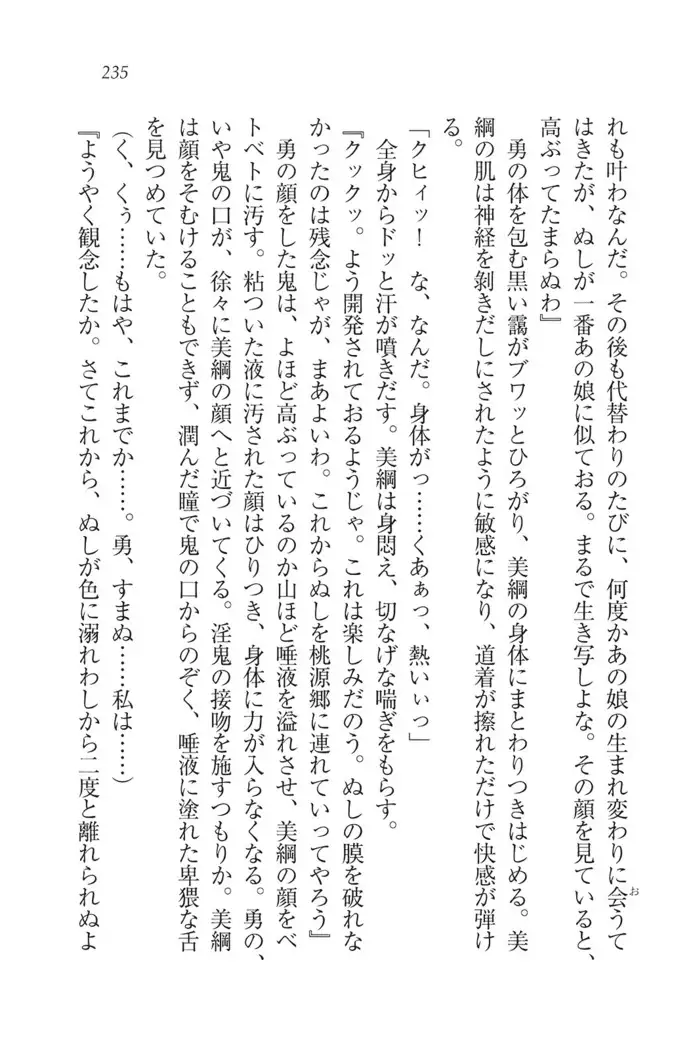 235
れも叶わなんだ。その後も代替わりのたびに、何度かあの娘の生まれ変わりに会うて
お
はきたが、ぬしが一番あの娘に似ておる。まるで生き写しよな。その顔を見ていると、
高ぶってたまらぬわ』
　勇の体を包む黒い靄がブワッとひろがり、美綱の身体にまとわりつきはじめる。美
綱の肌は神経を剥きだしにされたように敏感になり、道着が擦れただけで快感が弾け
る。
「クヒィッ！　な、なんだ。身体がっ……くあぁっ、熱いぃっ」
　全身からドッと汗が噴きだす。美綱は身悶え、切なげな喘ぎをもらす。
『クックッ。よう開発されておるようじゃ。これは楽しみだのう。ぬしの膜を破れな
かったのは残念じゃが、まあよいわ。これからぬしを桃源郷に連れていってやろう』
　勇の顔をした鬼は、よほど高ぶっているのか山ほど唾液を溢れさせ、美綱の顔をベ
トベトに汚す。粘ついた液に汚された顔はひりつき、身体に力が入らなくなる。勇の、
いや鬼の口が、徐々に美綱の顔へと近づいてくる。淫鬼の接吻を施すつもりか。美綱
は顔をそむけることもできず、潤んだ瞳で鬼の口からのぞく、唾液に塗れた卑猥な舌
を見つめていた。
（く、くぅ……もはや、これまでか……。勇、すまぬ……私は……）
『ようやく観念したか。さてこれから、ぬしが色に溺れわしから二度と離れられぬよ